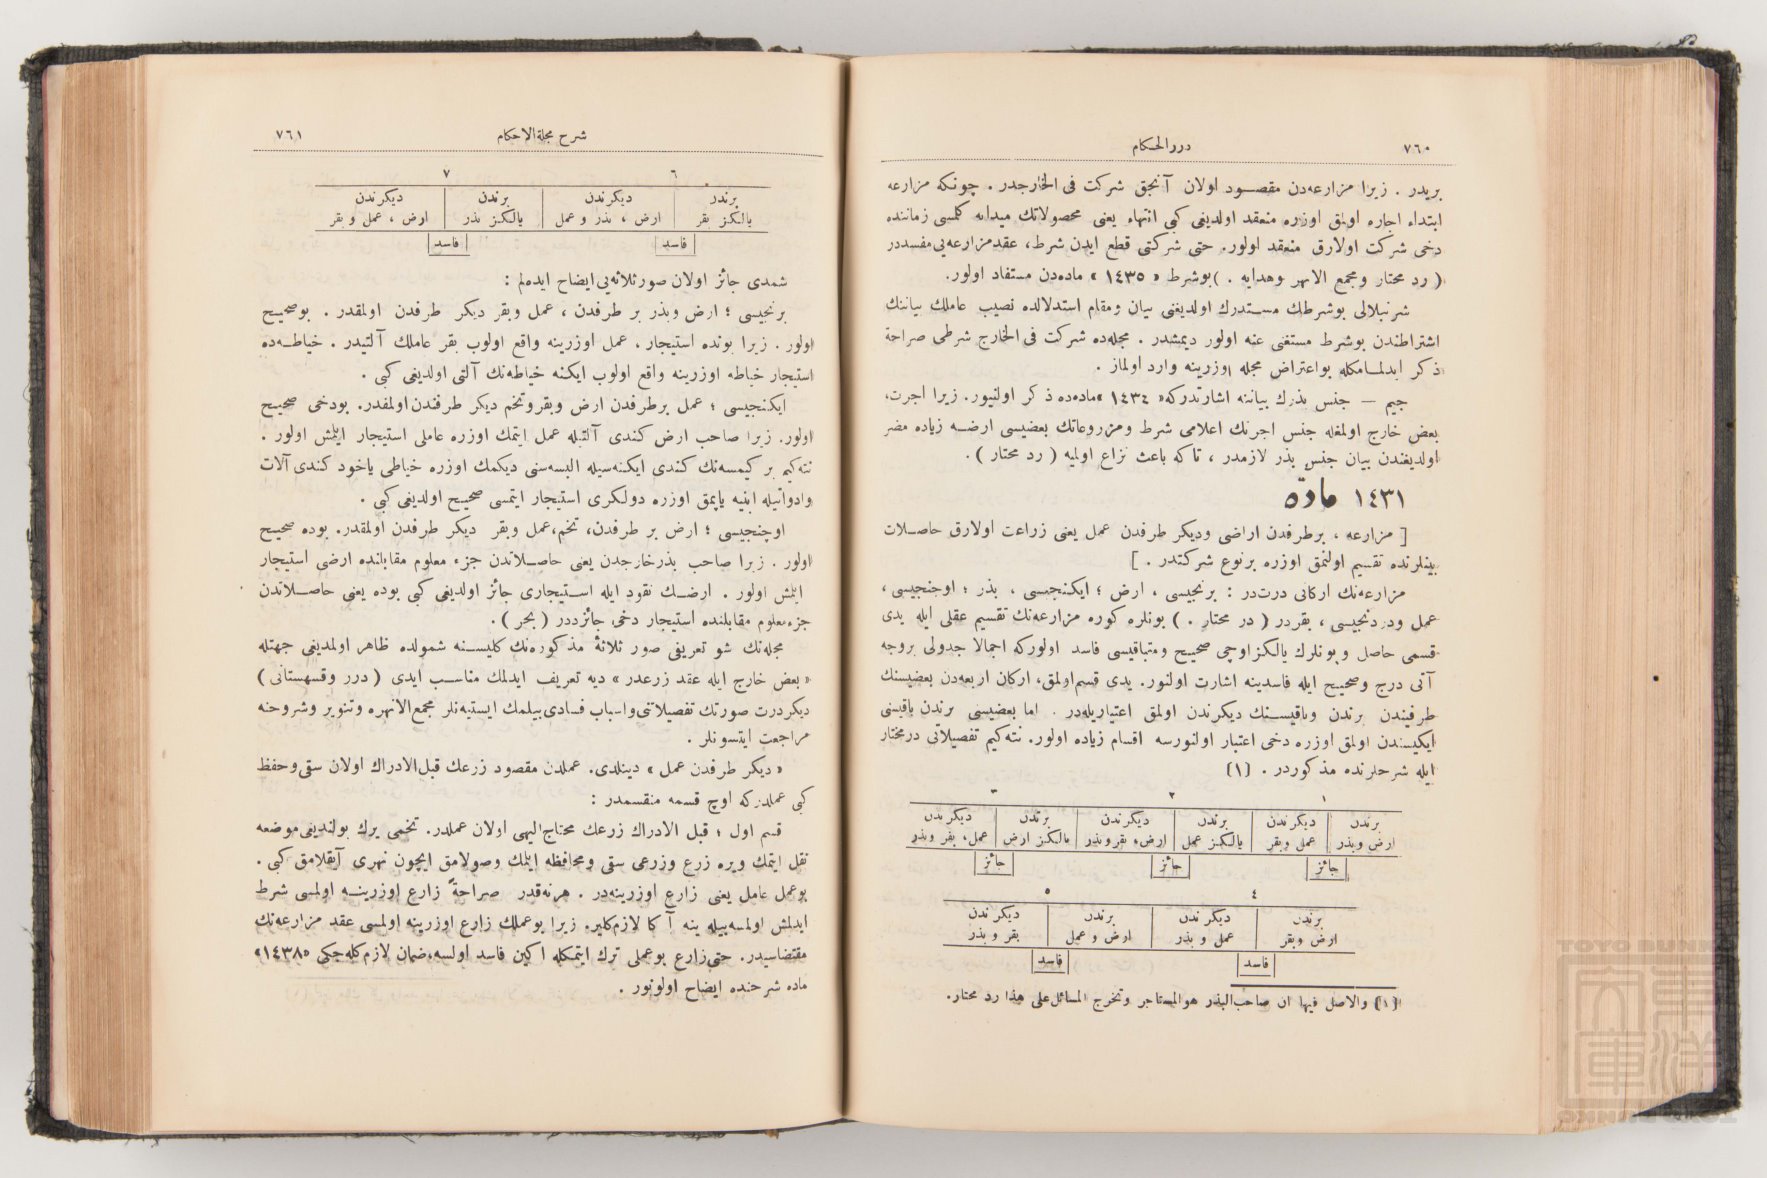 ٧٦٠
دررالحكام
بریدر . زیرا مزارعه‌دن مقصود اولان آنجق شركت فی الخارجدر . چونكه مزارعه
ابتداء اجاره اولمق اوزره منعقد اولدیغی كبی انتهاء یعنی محصولاتك میدانه كلمسی زماننده
دخی شركت اولارق منعقد اولور. حتی شركتی قطع ایدن شرط، عقدمزارعه‌یی مفسددر
( رد محتار ومجمع الانهر وهدایه . )بوشرط « ١٤٣٥ » ماده‌دن مستفاد اولور.
شرنبلالی بوشرطك مستدرك اولدیغنی بیان ومقام استدلالده نصیب عاملك بیاننك
اشتراطندن بوشرط مستغنی عنه اولور دیمشدر . مجله‌ده شركت فی الخارج شرطی صراحة
ذكر ایدلمامكله بواعتراض مجله اوزرینه وارد اولماز .
جیم — جنس بذرك بیاننه اشارتدركه« ١٤٣٤ »ماده‌ده ذكر اولنیور. زیرا اجرت،
بعض خارج اولمغله جنس اجرتك اعلامی شرط ومزروعاتك بعضیسی ارضه زیاده مضر
اولدیغندن بیان جنس بذر لازمدر ، تاكه باعث نزاع اولمیه ( رد محتار ) .
١٤٣١ مادّه
[ مزارعه ، برطرفدن اراضی ودیكر طرفدن عمل یعنی زراعت اولارق حاصلات
بینلرنده تقسیم اولنمق اوزره برنوع شركتدر . ]
مزارعه‌نك اركانی درت‌در : برنجیسی ، ارض ؛ ایكنجیسی ، بذر ؛ اوچنجیسی ،
عمل ودردنجیسی ، بقردر ( در محتار . ) بونلره كوره مزارعه‌نك تقسیم عقلی ایله یدی
قسمی حاصل وبونلرك یالكز اوچی صحیح ومتباقیسی فاسد اولوركه اجمالا جدولی بروجه
آتی درج وصحیح ایله فاسدینه اشارت اولنور. یدی قسم‌اولمق، اركان اربعه‌دن بعضیسنك
طرفیندن برندن وباقیسنك دیكرندن اولمق اعتباریله‌در . اما بعضیسی برندن باقیسی
ایكیسندن اولمق اوزره دخی اعتبار اولنورسه اقسام زیاده اولور. نته‌كیم تفصیلاتی درمختار
ایله شرحلرنده مذكوردر . (١)
١ ٢ ٣
برندن دیكرندن برندن دیكرندن برندن دیكرندن
ارض وبذر عمل وبقر یالكز عمل ارض، بقروبذر یالكز ارض عمل، بقر وبذر
جائز جائز جائز
٤ ٥
برندن دیكرندن برندن دیكرندن
ارض وبقر عمل و بذر ارض و عمل بقر و بذر
فاسد فاسد
(١) والاصل فیها ان صاحب‌البذر هوالمستاجر وتخرج المسائل‌علی هذا رد محتار.
شرح مجلةالاحكام
٧٦١
٦ ٧
برندن دیكرندن برندن دیكرندن
یالكز بقر ارض ، بذر و عمل یالكز بذر ارض ، عمل و بقر
فاسد فاسد
شمدی جائز اولان صورثلاثه‌یی ایضاح ایده‌لم :
برنجیسی ؛ ارض وبذر بر طرفدن ، عمل وبقر دیكر طرفدن اولمقدر . بوصحیح
اولور . زیرا بونده استیجار ، عمل اوزرینه واقع اولوب بقر عاملك آلتیدر . خیاطه‌ده
استیجار خیاطه اوزرینه واقع اولوب ایكنه خیاطه‌نك آلتی اولدیغی كبی .
ایكنجیسی ؛ عمل برطرفدن ارض وبقروتخم دیكر طرفدن اولمقدر. بودخی صحیح
اولور. زیرا صاحب ارض كندی آلتیله عمل ایتمك اوزره عاملی استیجار ایلمش اولور .
نته‌كیم بر كیمسه‌نك كندی ایكنه‌سیله البسه‌سنی دیكمك اوزره خیاطی یاخود كندی آلات
وادواتیله ابنیه یاپمق اوزره دولكری استیجار ایتمسی صحیح اولدیغی كبی .
اوچنجیسی ؛ ارض بر طرفدن، تخم،عمل وبقر دیكر طرفدن اولمقدر. بوده صحیح
اولور . زیرا صاحب بذرخارجدن یعنی حاصلاتدن جزء معلوم مقابلنده ارضی استیجار
ایلمش اولور . ارضك نقود ایله استیجاری جائز اولدیغی كبی بوده یعنی حاصلاتدن
جزءمعلوم مقابلنده استیجار دخی جائزددر ( بحر ) .
مجله‌نك شو تعریفی صور ثلاثهٔ مذكوره‌نك كلیسنه شمولده ظاهر اولمدیغی جهتله
« بعض خارج ایله عقد زرعدر » دیه تعریف ایدلمك مناسب ایدی ( درر وقهستانی )
دیكردرت صورتك تفصیلاتنی‌واسباب فسادی بیلمك ایستیه‌نلر مجمع‌الانهره وتنویر وشروحنه
مراجعت ایتسونلر .
« دیكر طرفدن عمل » دینلدی. عملدن مقصود زرعك قبل‌الادراك اولان سقی‌وحفظ
كبی عملدركه اوچ قسمه منقسمدر :
قسم اول ؛ قبل الادراك زرعك محتاج‌الیهی اولان عملدر. تخمی یرك بولندیغی‌موضعه
نقل ایتمك ویره زرع وزرعی سقی ومحافظه ایلمك وصولامق ایچون نهری آیقلامق كبی .
بوعمل عامل یعنی زارع اوزرینه‌در . هرنه‌قدر صراحةً زارع اوزرینه اولمسی شرط
ایدلمش اولمسه‌بیله ینه آكا لازم‌كلیر. زیرا بوعملك زارع اوزرینه اولمسی عقد مزارعه‌نك
مقتضاسیدر. حتی‌زارع بوعملی ترك ایتمكله اكین فاسد اولسه،ضمان لازم‌كله‌جكی «١٤٣٨»
ماده شرحنده ایضاح اولونور .
TOYO BUNKO